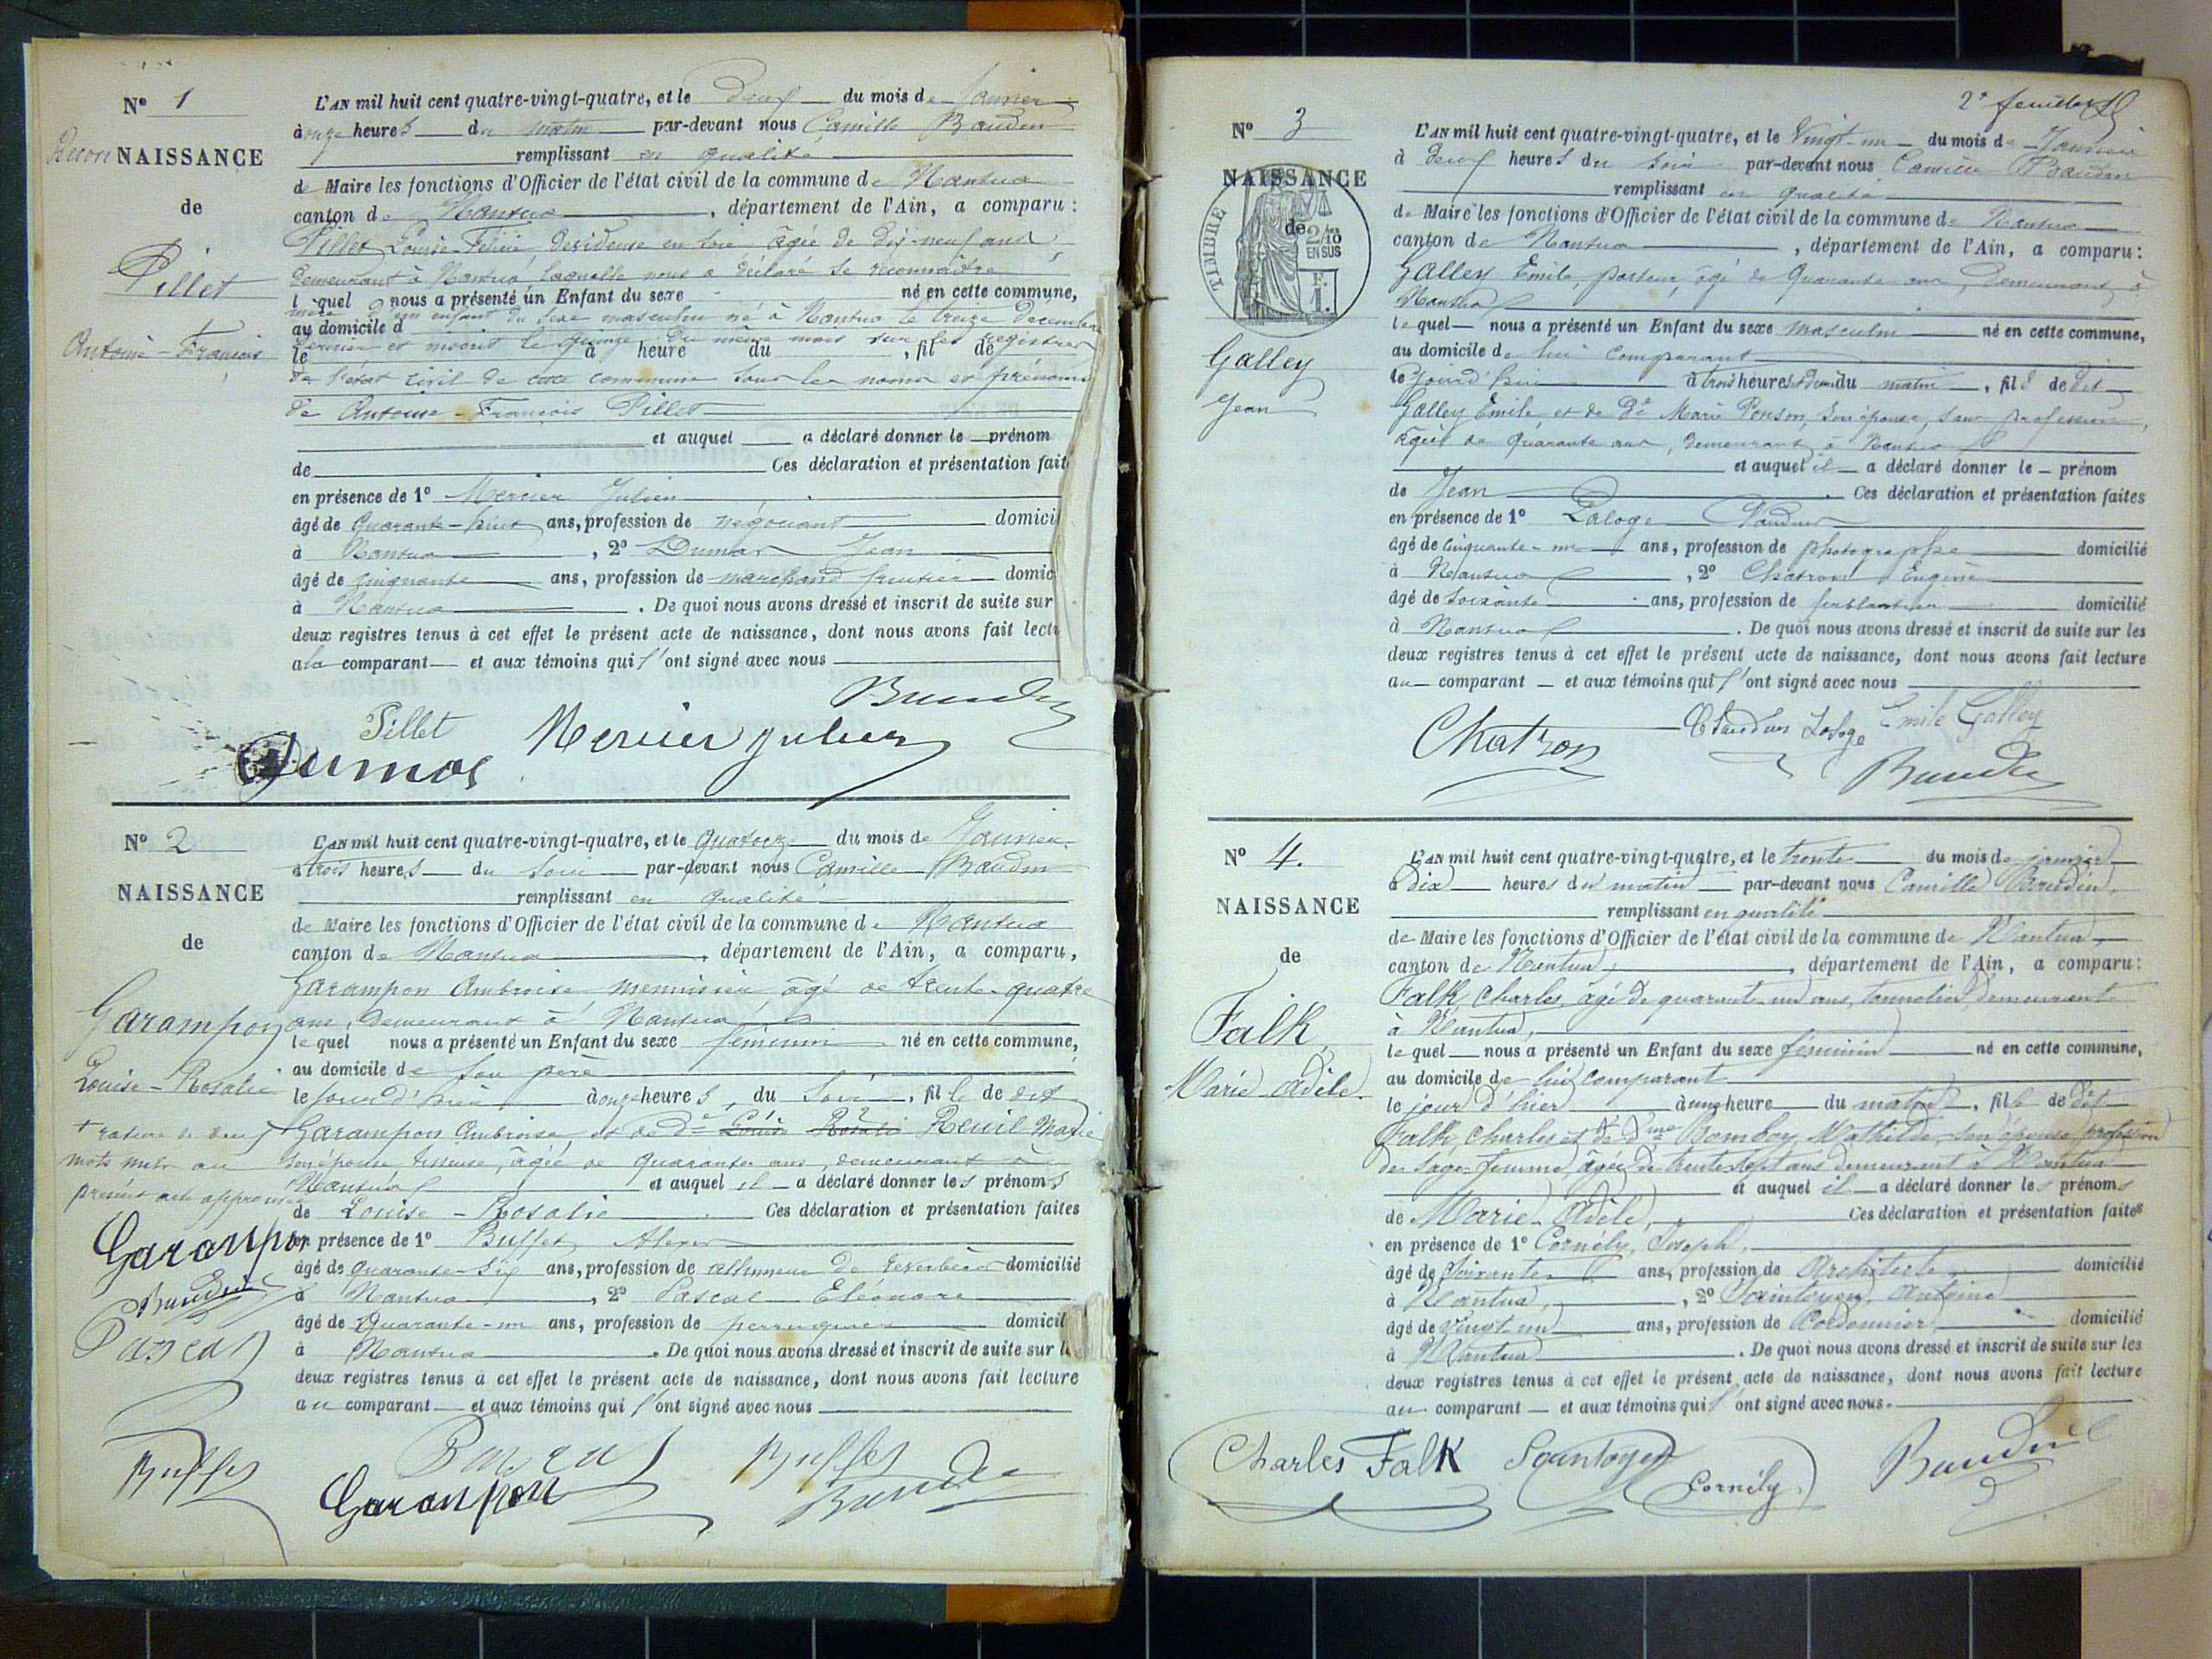 N° 1
Recon NAISSANCE
de
Pillet
Antoine-François
L'AN mil huit cent quatre-vingt-quatre, et le Deux du mois de Janvier
à onze heures du matin par-devant nous Camille Baudin
remplissant en qualité
de Maire les fonctions d'Officier de l'état civil de la commune de Nantua
canton de Nantua, département de l'Ain, a comparu :
Pillet Louise-Félicie, devideuse en soie âgée de dix-neuf ans,
demeurant à Nantua, laquelle nous a déclaré se reconnaitre
l quel nous a présenté un Enfant du sexe né en cette commune,
mère d'un enfant du sexe masculin né à Nantua le treize Décembre
au domicile d
dernier et inscrit le quinze du même mois sur les registres
le à heure du , fil de
de l'état civil de cette commune sous les noms et prénoms
de Antoine-François Pillet
et auquel a déclaré donner le prénom
de Ces déclaration et présentation fait
en présence de 1° Mercier Julien
âgé de quarante-huit ans, profession de négociant domici
à Nantua, 2° Dumas Jean
âgé de cinquante ans, profession de marchand fruitier domic
à Nantua. De quoi nous avons dressé et inscrit de suite sur
deux registres tenus à cet effet le présent acte de naissance, dont nous avons fait lectu
a la comparant et aux témoins qui l'ont signé avec nous
Baudin
Pillet Mercier Julien
Dumas
N° 2
NAISSANCE
de
Garampon
Louise-Rosalie
+ rature de deux
mots nuls au
présent acte approuvée
Garampon
Baudin
Pascal
Buffet
L'AN mil huit cent quatre-vingt-quatre, et le quatorze du mois de Janvier
à trois heures du soir par-devant nous Camille Baudin
remplissant en qualité
de Maire les fonctions d'Officier de l'état civil de la commune de Nantua
canton de Nantua, département de l'Ain, a comparu,
Garampon Ambroise, menuisier, âgé de trente-quatre
ans, demeurant à Nantua
le quel nous a présenté un Enfant du sexe féminin né en cette commune,
au domicile de son père
le jour d'hier à onze heures du soir, fille de dit
Garampon Ambroise, et de De Louise Rosalie Reuil Marie
son épouse, tisseuse, âgée de quarante ans, demeurant à
Nantua et auquel il a déclaré donner les prénoms
de Louise-Rosalie Ces déclaration et présentation faites
en présence de 1° Buffet Alexis
âgé de quarante-six ans, profession de allumeur de réverbères domicilié
à Nantua, 2° Pascal Eléonore
âgé de Quarante-un ans, profession de perruquier domicil
à Nantua. De quoi nous avons dressé et inscrit de suite sur l
deux registres tenus à cet effet le présent acte de naissance, dont nous avons fait lecture
au comparant et aux témoins qui l'ont signé avec nous
Pascal Buffet
Garampon Baudin
2e feuillet
N° 3
NAISSANCE
de
TIMBRE
2/10
EN SUS
F.
1.
Galley
Jean
L'AN mil huit cent quatre-vingt-quatre, et le Vingt-un du mois de Janvier
à deux heures du soir par-devant nous Camille Baudin
remplissant en qualité
de Maire les fonctions d'Officier de l'état civil de la commune de Nantua
canton de Nantua, département de l'Ain, a comparu :
Galley Emile, facteur, âgé de Quarante ans, demeurant à
Nantua
le quel nous a présenté un Enfant du sexe masculin né en cette commune,
au domicile de lui comparant
le jourd'hui à trois heures et demi du matin, fils de dit
Galley Emile, et de De Marie Ponson, son épouse, sans profession,
âgée de Quarante ans, demeurant à Nantua
et auquel il a déclaré donner le prénom
de Jean. Ces déclaration et présentation faites
en présence de 1° Laloge Claudius
âgé de cinquante-un ans, profession de photographe domicilié
à Nantua, 2° Chatron Eugène
âgé de soixante ans, profession de ferblantier domicilié
à Nantua. De quoi nous avons dressé et inscrit de suite sur les
deux registres tenus à cet effet le présent acte de naissance, dont nous avons fait lecture
au comparant et aux témoins qui l'ont signé avec nous
Chatron Claudius Laloge Emile Galley
Baudin
N° 4.
NAISSANCE
de
Falk,
Marie Adèle.
L'AN mil huit cent quatre-vingt-quatre, et le trente du mois de janvier
à dix heures du matin par-devant nous Camille Baudin,
remplissant en qualité
de Maire les fonctions d'Officier de l'état civil de la commune de Nantua,
canton de Nantua, département de l'Ain, a comparu :
Falk, Charles, âgé de quarante-un ans, tonnelier, demeurant
à Nantua,
le quel nous a présenté un Enfant du sexe féminin né en cette commune,
au domicile de lui comparant
le jour d'hier à une heure du matin, fille de dit
Falk, Charles et de Dme Bomboy, Mathilde, son épouse, profession
de sage-femme, âgée de trente-sept ans demeurant à Nantua
et auquel il a déclaré donner les prénoms
de Marie Adèle. Ces déclaration et présentation faites
en présence de 1° Cornély, Joseph,
âgé de soixante ans, profession de Architecte domicilié
à Nantua, 2° Saintoyen, Antoine
âgé de vingt-un ans, profession de Cordonnier domicilié
à Nantua. De quoi nous avons dressé et inscrit de suite sur les
deux registres tenus à cet effet le présent acte de naissance, dont nous avons fait lecture
au comparant et aux témoins qui l'ont signé avec nous.
Charles Falk Saintoyen Cornély Baudin